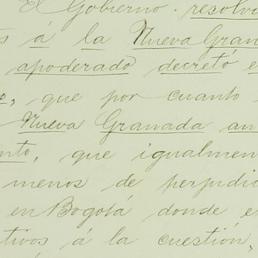 El Gobierno resolvi
s á la Nueva Gran
apoderado decretó e
, que por cuanto
Nueva Granada an
nto, que igualmen
menos de perjudic
en Bogotá donde e
tivos á la cuestión,